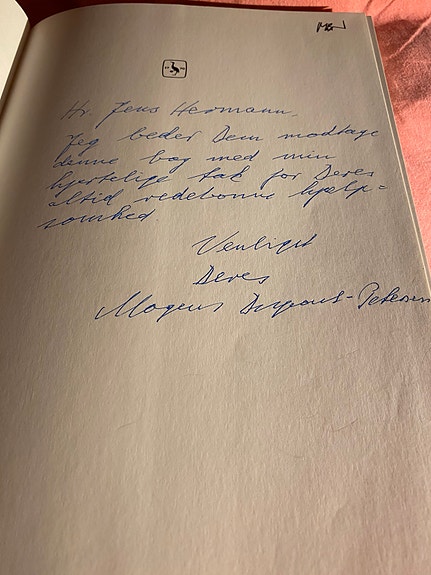 Hr. Jens Hermann.
Jeg beder Dem modtage
denne bog med min
hjertelige tak for Deres
altid redebonne hjælp=
somhed.
Venligst
Deres
Mogens Dupont-Petersen